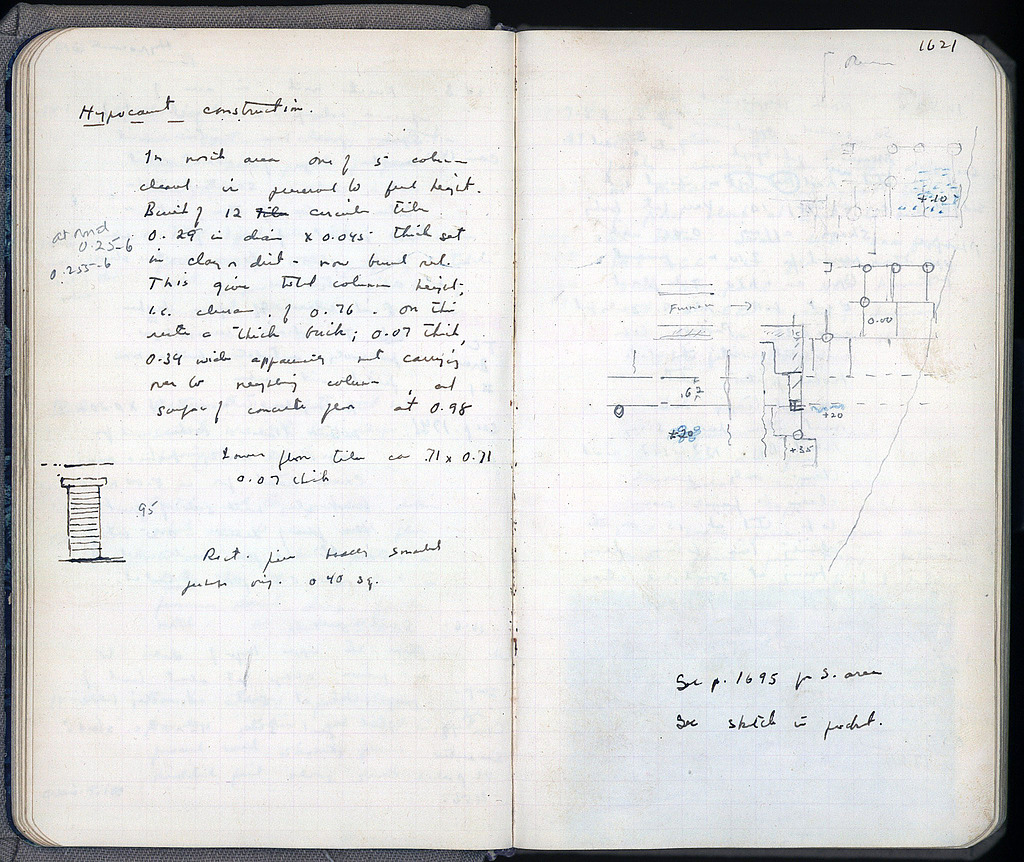 Hypocaust construction.
In north area one of 5 column
cleared is preserved to full height.
Built of 12 circular tiles
0.29 in diam x 0.045 thick set
in clay
This gives total column height,
i.e. of 0.76. on this
rests a thick brick; 0.07 thick,
0.34 wide apparently not carrying
over to neighboring column, and
surface of concrete floor at 0.98
at mid
0.25-6
0.255-6
Lower floor tiles ca .71 x 0.71
0.07 thick
.95
Rect. pier smaller
perhaps orig. 0.40 sq.
1621
+.10
Furnace
0.00
.62
+20
+20
+35
See p. 1695 for S. area
See sketch in pocket.